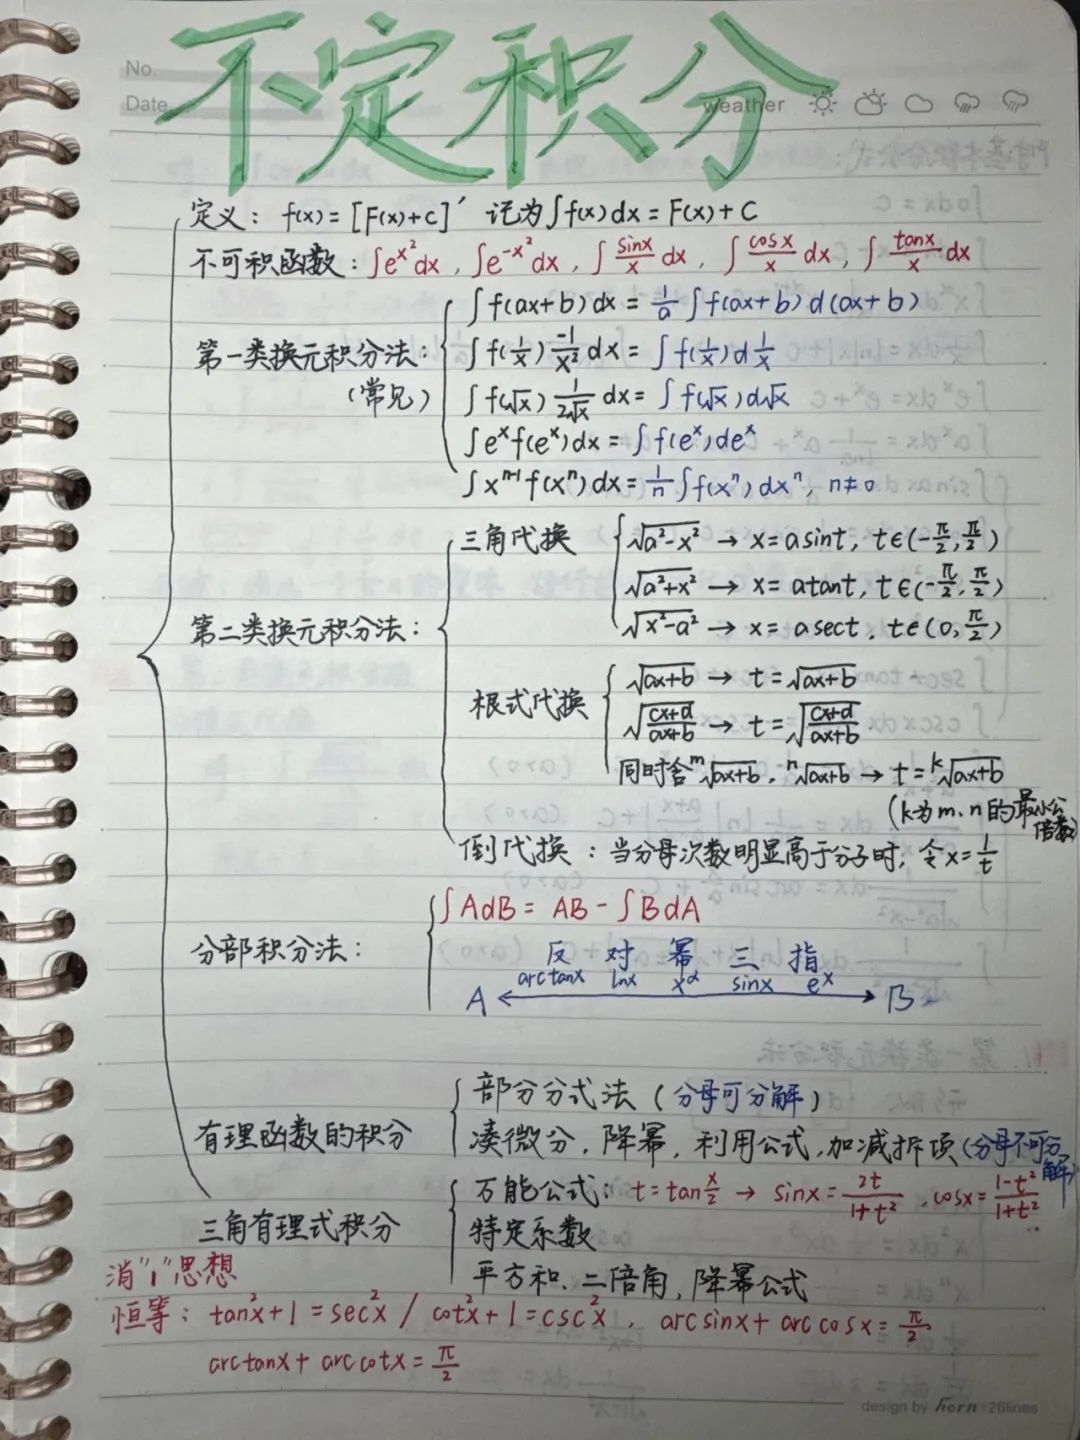 不定积分
No.
Date
weather
定义：f(x)=[F(x)+C]′ 记为∫f(x)dx=F(x)+C
不可积函数：∫e^x²dx，∫e^-x²dx，∫sinx/x dx，∫cosx/x dx，∫tanx/x dx
∫f(ax+b)dx=1/a∫f(ax+b)d(ax+b)
第一类换元积分法：∫f(1/x)-1/x²dx=∫f(1/x)d1/x
(常见) ∫f(√x)1/2√x dx=∫f(√x)d√x
∫e^x f(e^x)dx=∫f(e^x)de^x
∫x^n-1 f(x^n)dx=1/n∫f(x^n)dx^n，n≠0
三角代换 √a²-x² → x=asint，t∈(-π/2,π/2)
√a²+x² → x=atant，t∈(-π/2,π/2)
第二类换元积分法：√x²-a² → x=asect，t∈(0,π/2)
√ax+b → t=√ax+b
根式代换 √cx+d/ax+b → t=√cx+d/ax+b
同时含 m√ax+b，n√ax+b → t=k√ax+b
(k为m、n的最小公倍数)
倒代换：当分母次数明显高于分子时，令x=1/t
∫AdB=AB-∫BdA
分部积分法： 反 对 幂 三 指
arctanx lnx x^α sinx e^x
A ↔ B
部分分式法（分母可分解）
有理函数的积分 凑微分，降幂，利用公式，加减拆项(分母不可分解)
万能公式：t=tan x/2 → sinx=2t/1+t²，cosx=1-t²/1+t²
三角有理式积分 特定系数
平方和、二倍角，降幂公式
消“1”思想
恒等：tan²x+1=sec²x / cot²x+1=csc²x，arcsinx+arccosx=π/2
arctanx+arccotx=π/2
design by horn 26lines